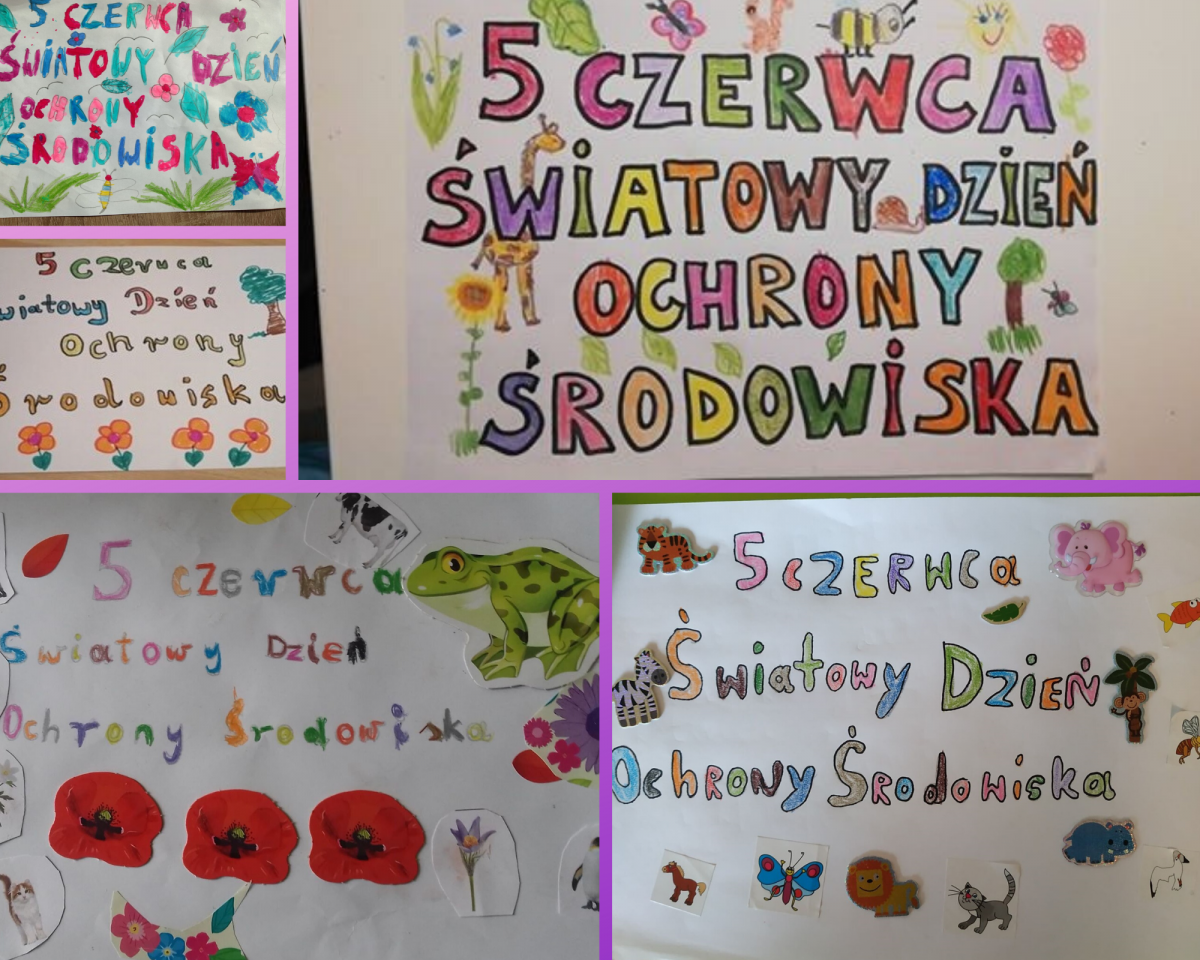 5 CZERWCA
ŚWIATOWY DZIEŃ
OCHRONY
ŚRODOWISKA
5 CZERWCA
ŚWIATOWY DZIEŃ
OCHRONY
ŚRODOWISKA
5 czerwca
wiatowy Dzień
Ochrony
Środowiska
5 czerwca
Światowy Dzień
Ochrony Środowiska
5 CZERWCa
Światowy DziEń
OchroNy Środowiska